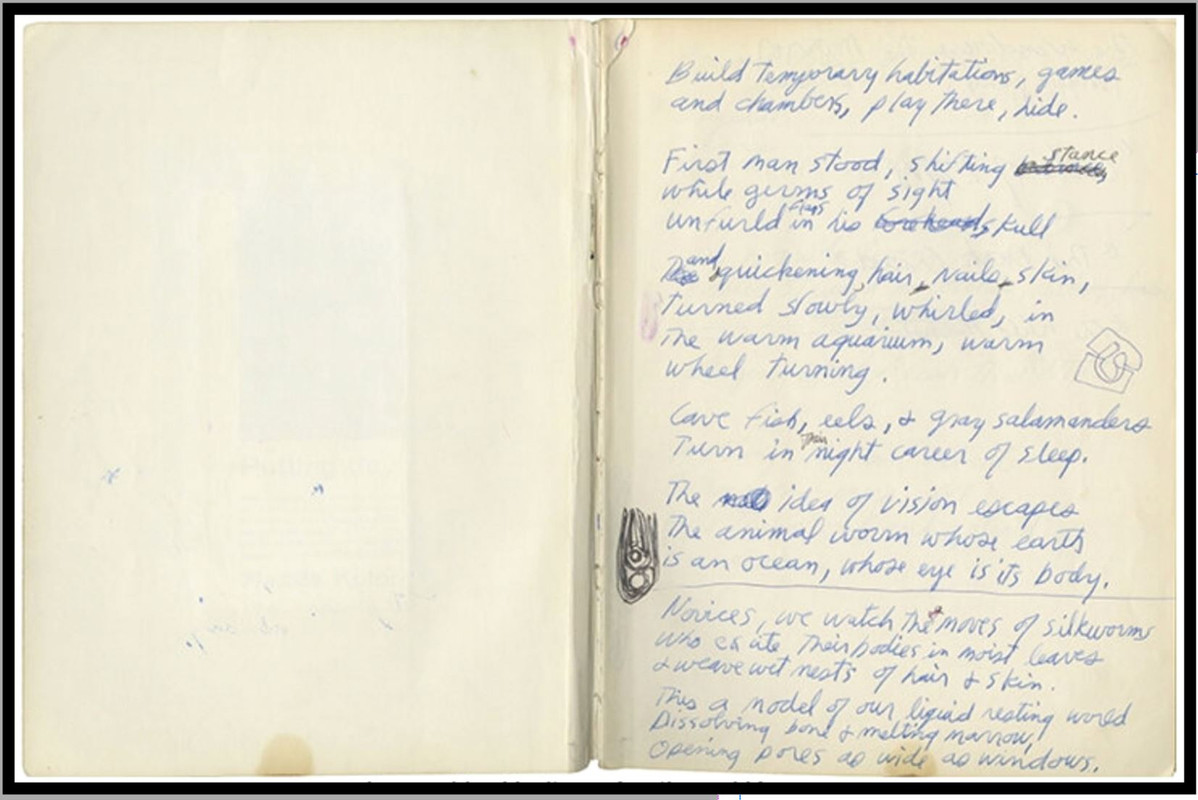 Build temporary habitations, games
and chambers, play there, hide.
First man stood, shifting stance
while germs of sight
unfurl'd in his skull
and quickening, hair, nails, skin,
turned slowly, whirled, in
the warm aquarium, warm
wheel turning.
Cave fish, eels, & gray salamanders
Turn in their night career of sleep.
The idea of vision escapes
the animal worm whose earth
is an ocean, whose eye is its body.
Novices, we watch the moves of silkworms
who excite their bodies in moist leaves
& weave wet nests of hair & skin.
This a model of our liquid resting world
Dissolving bone & melting marrow,
Opening pores as wide as windows.